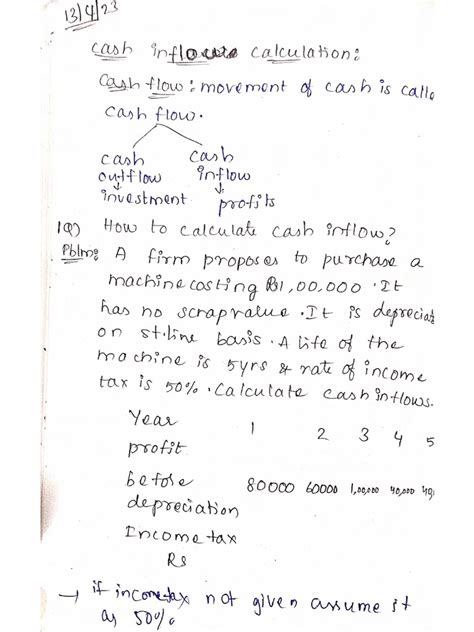 13/4/23
Cash inflows calculation:
Cash flow: movement of cash is calle
Cash flow.
cash cash
outflow inflow
investment profits
1Q) How to calculate cash inflow?
Pblm: A firm proposes to purchase a
machine costing Rs1,00,000. It
has no scrapvalue. It is depreciat
on st.line basis. A life of the
machine is 5yrs & rate of income
tax is 50%. Calculate cash inflows.
Year 1 2 3 4 5
profit
before 80000 60000 1,00,000 40,000
depreciation
Income tax
Rs
→ if incometax not given assume it
as 50%